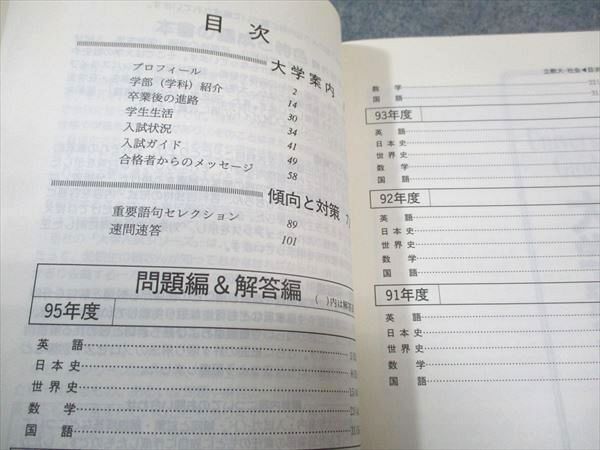 目次
大学案内
プロフィール 2
学部（学科）紹介 14
卒業後の進路 30
学生生活 34
入試状況 41
入試ガイド 49
合格者からのメッセージ 58
傾向と対策
重要語句セレクション 89
速問速答 101
問題編＆解答編
95年度
英語
日本史
世界史
数学
国語
立教大-社会◀目次
数学
国語
93年度
英語
日本史
世界史
数学
国語
92年度
英語
日本史
世界史
数学
国語
91年度
英語
日本史
世界史
数学
国語